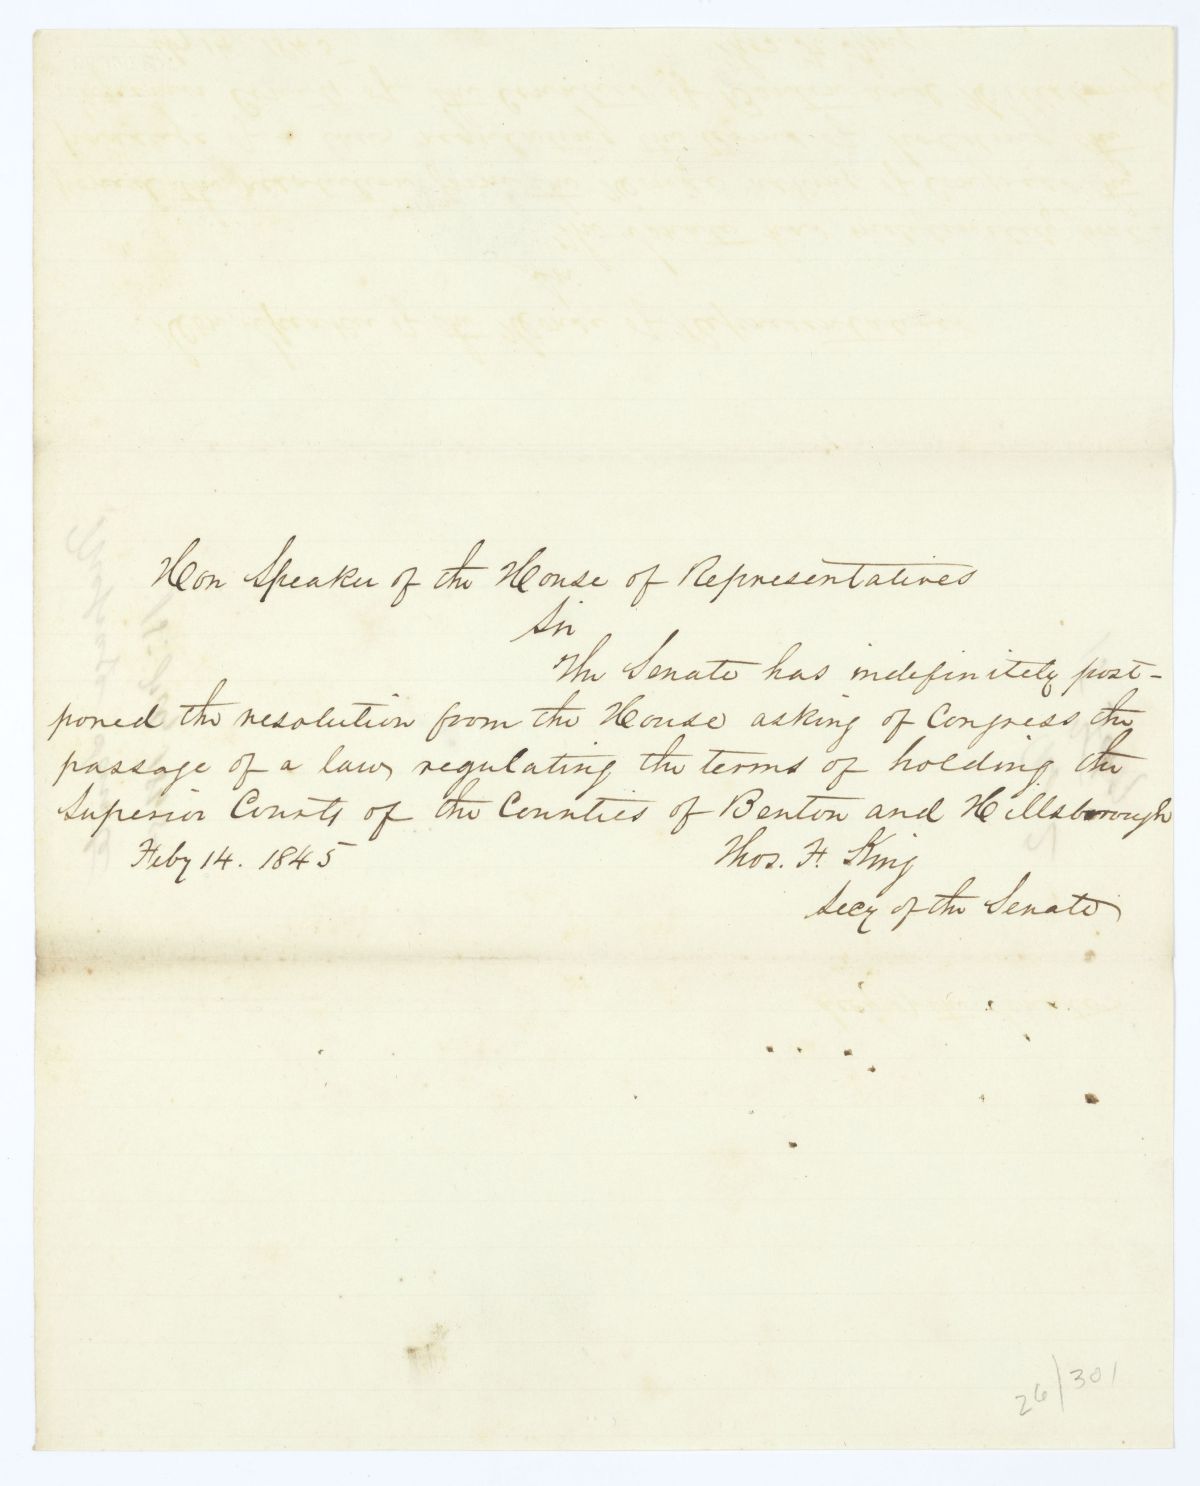 Hon Speaker of the House of Representatives
Sir
The Senate has indefinitely post-
poned the resolution from the House asking of Congress the
passage of a law regulating the terms of holding the
Superior Courts of the Counties of Benton and Hillsborough
Feby 14. 1845 Thos. F. King
Secy of the Senate
26/301